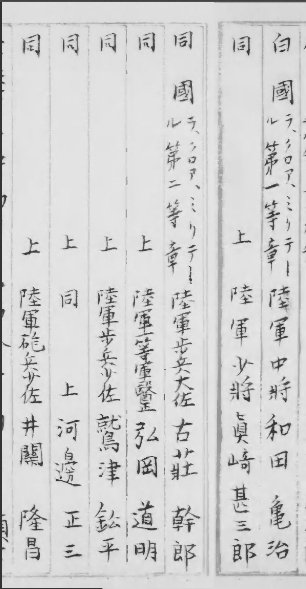 白國ラ、クロア、ミリテールル第一等章 陸軍中將 和田 亀治
同 上 陸軍少將 眞崎 甚三郎
同國ラ、クロア、ミリテールル第二等章 陸軍歩兵大佐 古莊 幹郎
同 上 陸軍一等軍醫正 弘岡 道明
同 上 陸軍歩兵少佐 鷲津 鈆平
同 上 同 上 河邊 正三
同 上 陸軍砲兵少佐 井關 隆昌